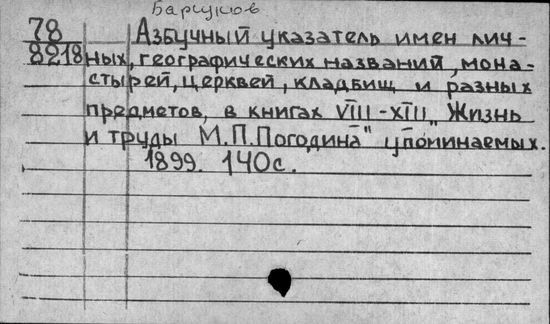 Барсуков
78 Азбучный указатель имен лич-
8218 ных, географических названий, мона-
стырей, церквей, кладбищ и разных
предметов, в книгах VIII-XIII „Жизнь
и труды М.П.Погодина" упоминаемых.
1899. 140с.